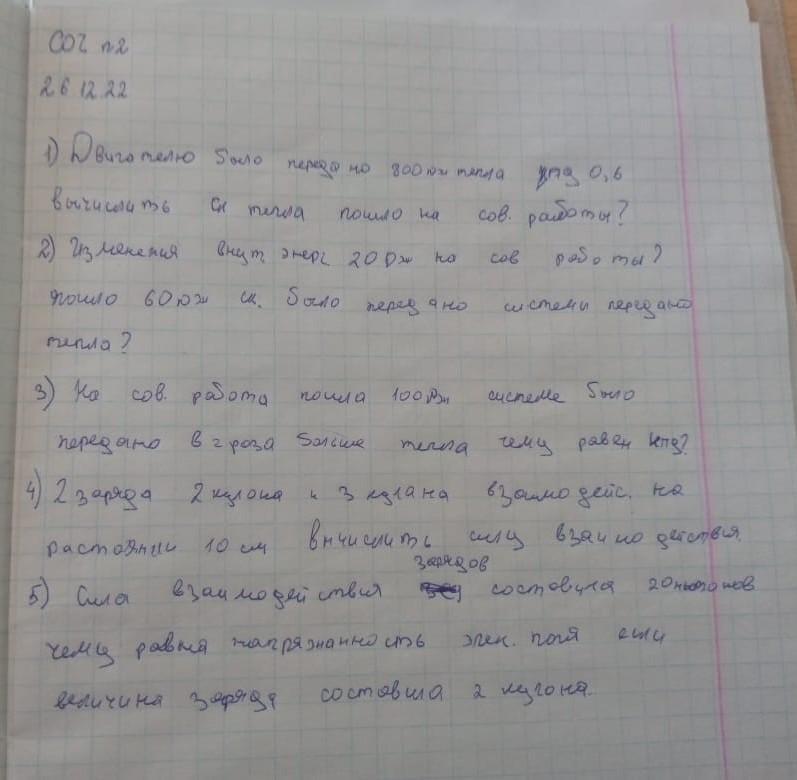 СОЧ п2
26 12.22
1) Двигателю было передано 800дж тепла кпд 0,6
вычислить ск тепла пошло на сов. работы?
2) Изменения внут энерг 20дж на сов работы?
пошло 60дж ск. было передано системы передано
тепла?
3) На сов. работа пошла 100дж системе было
передано в 2 роза больше тепла чему равен кпд?
4) 2 заряда 2 кулона и 3 кулана взаимодейс. на
растоянии 10 см вычислить силу взаимодействия.
зарядов
5) Сила взаимодействия составила 20ньютонов
чему равна напрязнанность элек. поля если
величина заряда составила 2 кулона.